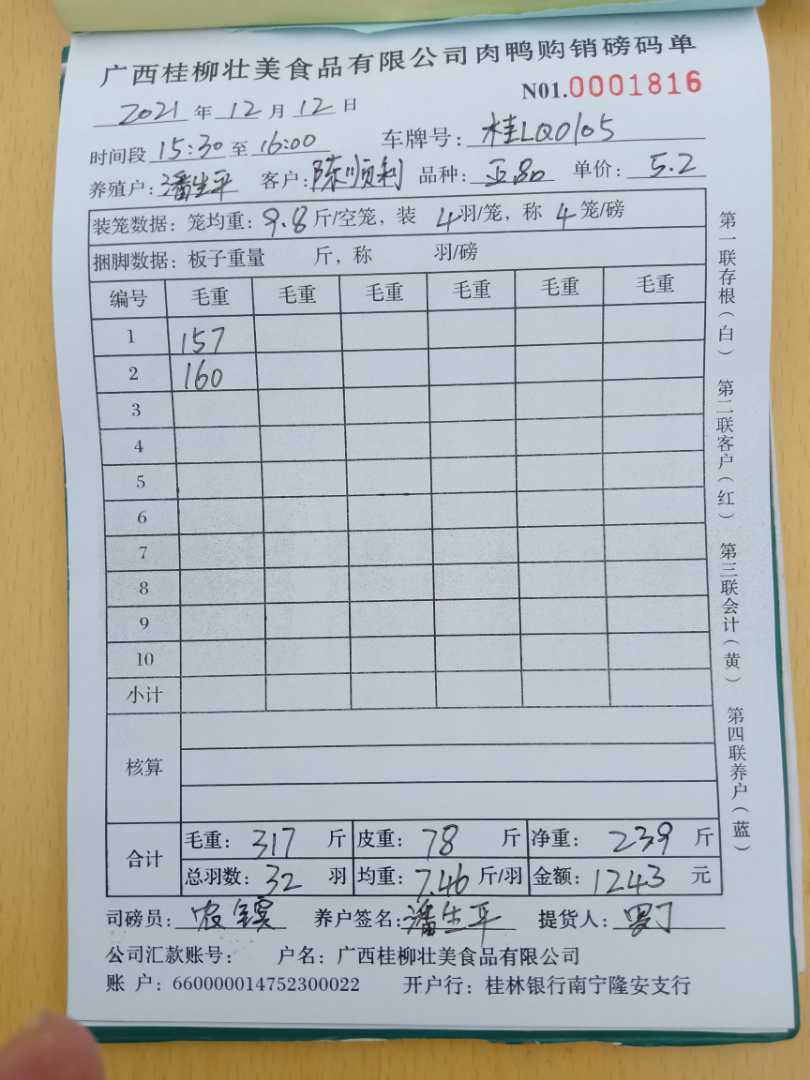 广西桂柳壮美食品有限公司肉鸭购销磅码单
N01.0001816
2021年12月12日
时间段15:30至16:00 车牌号:桂LQ0105
养殖户:潘生平 客户:陈顺利 品种: 单价:5.2
装笼数据：笼均重：9.8斤/空笼，装4羽/笼，称4笼/磅
捆脚数据：板子重量 斤，称 羽/磅
编号 毛重 毛重 毛重 毛重 毛重 毛重
1 157
2 160
3
4
5
6
7
8
9
10
小计
核算
合计
毛重：317斤 皮重：78斤 净重：239斤
总羽数：32羽 均重：7.46斤/羽 金额：1243元
司磅员: 养户签名:潘生平 提货人:
公司汇款账号： 户名：广西桂柳壮美食品有限公司
账户：660000014752300022 开户行：桂林银行南宁隆安支行
第一联存根（白） 第二联客户（红） 第三联会计（黄） 第四联养户（蓝）